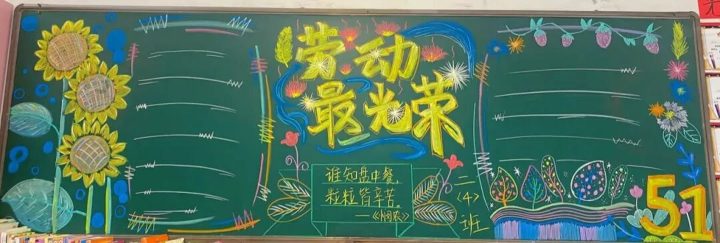 劳动
最光荣
谁知盘中餐,
粒粒皆辛苦。
——《悯农》
二
〈4〉
班
51